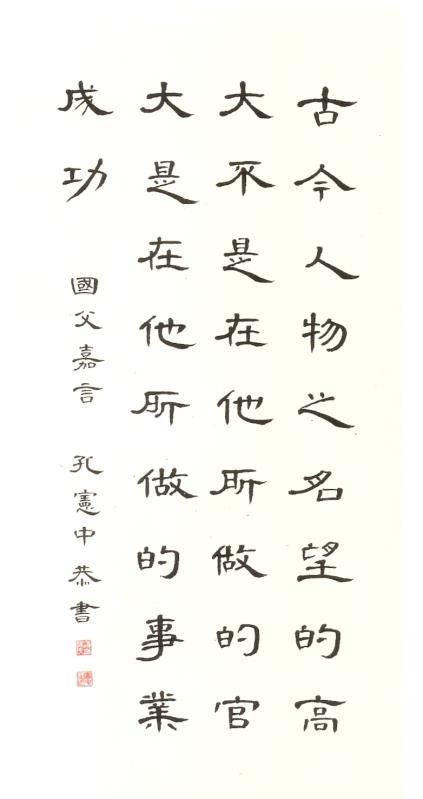 古今人物之名望的高
大不是在他所做的官
大是在他所做的事業
成功　國父嘉言　孔憲中恭書